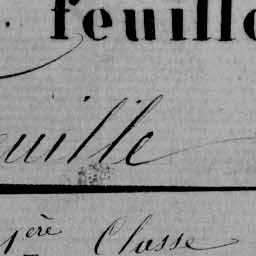 feuille
uille
1ère Classe